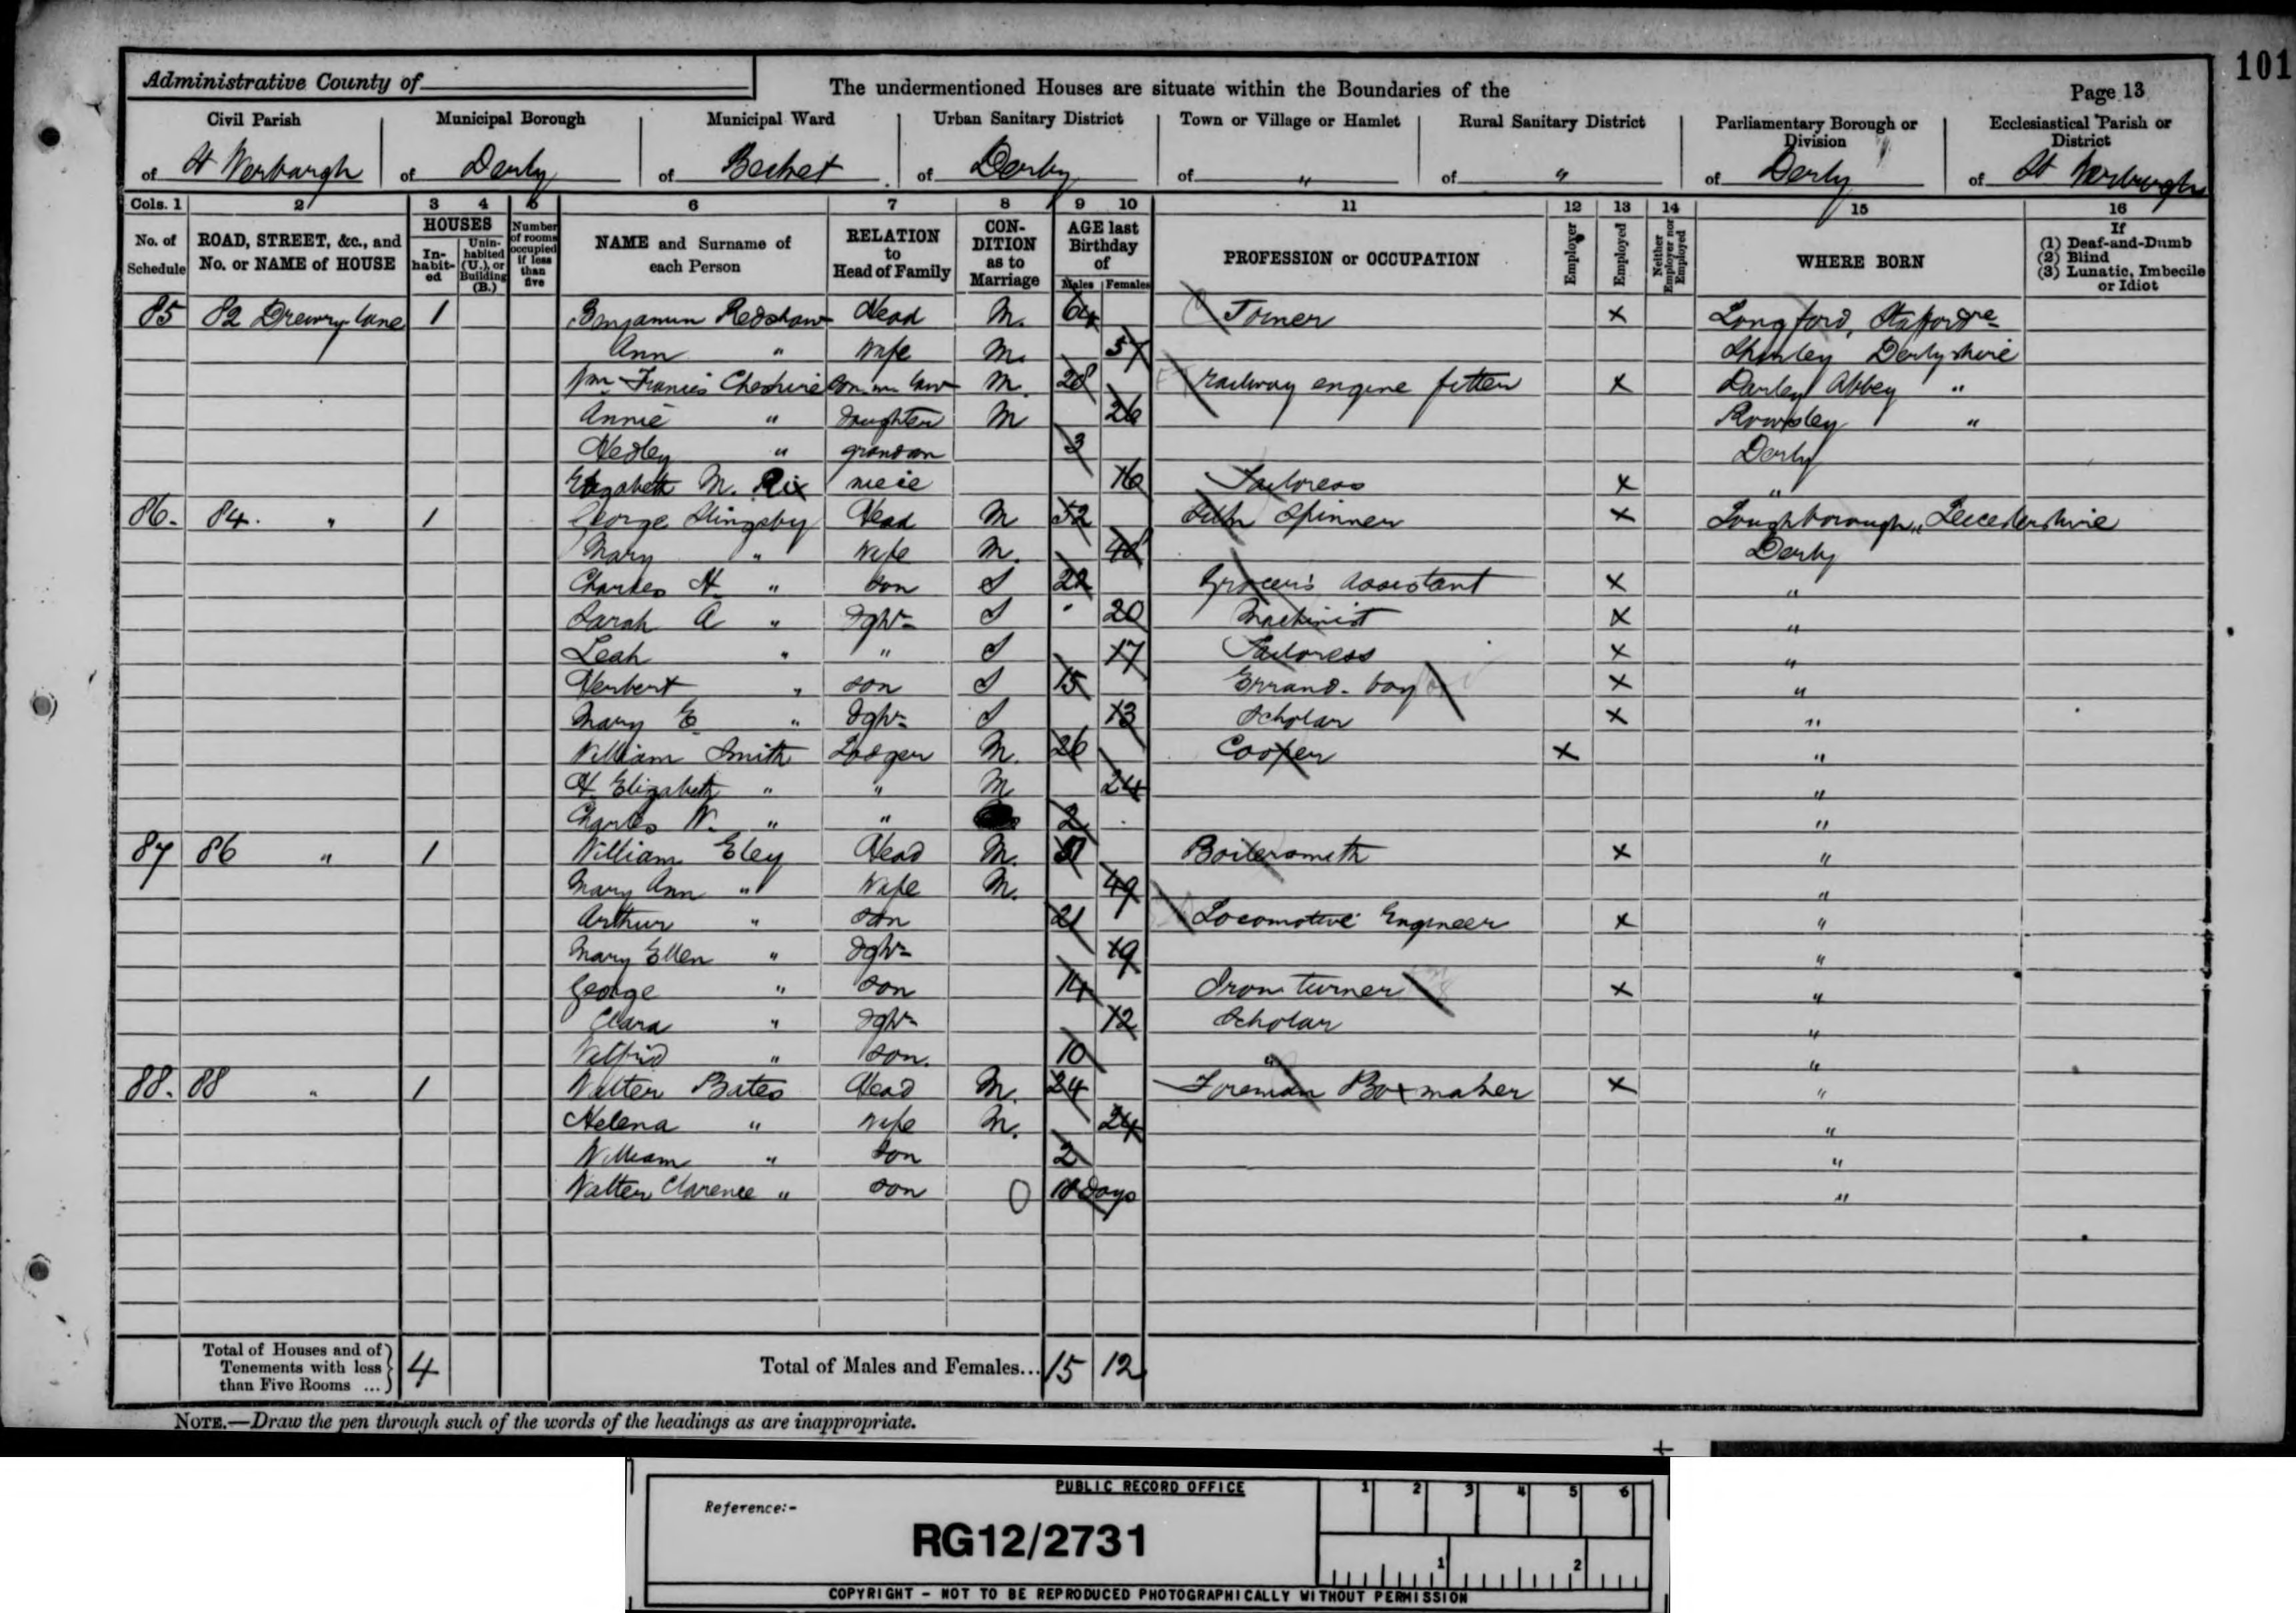 101
Administrative County of
The undermentioned Houses are situate within the Boundaries of the
Page 13
Civil Parish of St Werburgh
Municipal Borough of Derby
Municipal Ward of Becket
Urban Sanitary District of Derby
Town or Village or Hamlet of "
Rural Sanitary District of "
Parliamentary Borough or Division of Derby
Ecclesiastical Parish or District of St Werburghs
Cols. 1 2 3 4 5 6 7 8 9 10 11 12 13 14 15 16
No. of Schedule
ROAD, STREET, &c., and No. or NAME of HOUSE
HOUSES
In-habit-ed
Unin-habited (U.), or Building (B.)
Number of rooms occupied if less than five
NAME and Surname of each Person
RELATION to Head of Family
CON-DITION as to Marriage
AGE last Birthday of
Males Females
PROFESSION or OCCUPATION
Employer
Employed
Neither Employer nor Employed
WHERE BORN
If (1) Deaf-and-Dumb (2) Blind (3) Lunatic, Imbecile or Idiot
85 82 Drewry lane 1 Benjamin Redshaw Head M. 64 Joiner X Longford, Staffordre
Ann " Wife M. 57 Shirley Derbyshire
Wm Francis Cheshire Son in law M. 28 Railway engine fitter X Darley Abbey "
Annie " Daughter M 26 Rowsley "
Hedley " grandson 3 Derby
Elizabeth M. Rix niece 16 Tailoress X "
86. 84. " 1 George Slingsby Head M 52 Silk Spinner X Loughborough, Leicestershire
Mary " Wife M. 48 Derby
Charles H " Son S 22 Grocer's Assistant X "
Sarah A " Dghr S 20 Machinist X "
Leah " " S 17 Tailoress X "
Herbert " son S 15 Errand-boy X "
Mary E " Dghr S 13 Scholar X "
William Smith Lodger M. 26 Cooper X "
H. Elizabeth " " M 24 "
Charles W. " " 2 "
87 86 " 1 William Eley Head M. Boilersmith X "
Mary Ann " Wife M. 49 "
Arthur " Son 21 Locomotive Engineer X "
Mary Ellen " Dghr 19 "
George " Son 14 Iron turner X "
Clara " Dghr 12 Scholar "
Wilfrid " Son. 10 " "
88. 88 " 1 Walter Bates Head M. 24 Foreman Boxmaker X "
Helena " Wife M. 24 "
William " Son 2 "
Walter Clarence " son 0 10 days "
Total of Houses and of Tenements with less than Five Rooms ... 4
Total of Males and Females... 15 12
NOTE.—Draw the pen through such of the words of the headings as are inappropriate.
PUBLIC RECORD OFFICE
1 2 3 4 5 6
Reference:-
RG12/2731
1 2
COPYRIGHT - NOT TO BE REPRODUCED PHOTOGRAPHICALLY WITHOUT PERMISSION